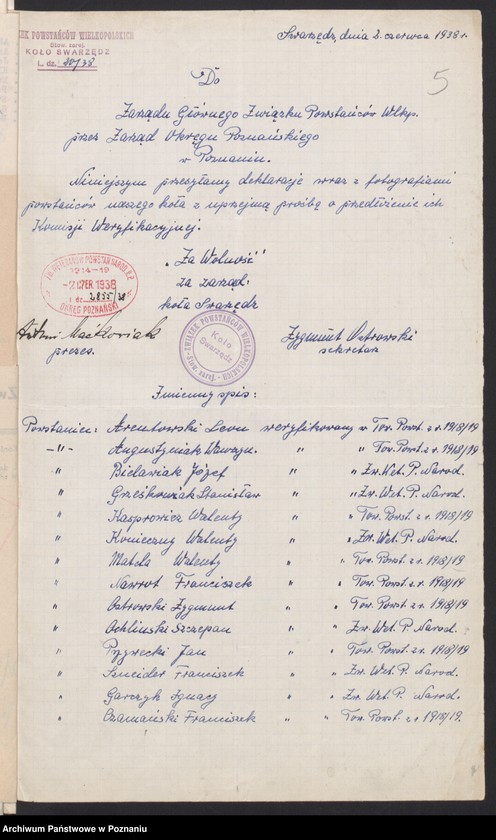 ZEK POWSTAŃCÓW WIELKOPOLSKICH
Stow. zarej.
KOŁO SWARZĘDZ
L. dz. 20/38
Swarzędz, dnia 2. czerwca 1938 r.
5
Do
Zarządu Głównego Związku Powstańców Wlkp.
przez Zarząd Okręgu Poznańskiego
w Poznaniu.
Niniejszym przesyłamy deklaracje wraz z fotografiami
powstańców naszego koła z uprzejmą prośbą o przedłożenie ich
Komisji Weryfikacyjnej.
"Za Wolność"
za zarząd:
koła Swarzędz
POWSTAŃ NAROD. R.P.
1914-19
-2 CZER. 1938
L. dz. 2855/38
OKRĘG POZNAŃSKI
Maćkowiak
prezes.
ZWIĄZEK POWSTAŃCÓW WIELKOPOLSKICH
Koło
Swarzędz
zarej.
Zygmunt Ostrowski
sekretarz
Imienny spis:
Powstaniec: Arentowski Leon weryfikowany w Tow. Powst. z r. 1918/19
-"- Augustyniak Wawrzyn. " " Tow. Powst. z r. 1918/19
" Bielawiak Józef " " Zw. Wet. P. Narod.
" Grześkowiak Stanisław " " Zw. Wet. P. Narod.
" Kasprowicz Walenty " " Tow. Powst. z r. 1918/19
" Konieczny Walenty " " Zw. Wet. P. Narod.
" Matela Walenty " " Tow. Powst. z r. 1918/19
" Nawrot Franciszek " " Tow. Powst. z r. 1918/19
" Ostrowski Zygmunt " " Tow. Powst. z r. 1918/19
" Ochliński Szczepan " " Zw. Wet. P. Narod.
" Pyzwecki Jan " " Tow. Powst. z r. 1918/19
" Szneider Franciszek " " Zw. Wet. P. Narod.
" Garczyk Ignacy " " Zw. Wet. P. Narod.
" Czamański Franciszek " " Tow. Powst. z r. 1918/19.
Archiwum Państwowe w Poznaniu